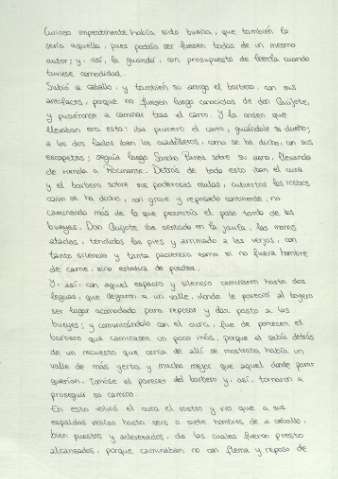 Curioso impertinente había sido buena, que también lo
sería aquella, pues podría ser fuesen todas de un mesmo
autor; y, así, la guardó, con prosupuesto de leerla cuando
tuviese comodidad.
Subió a caballo, y también su amigo el barbero, con sus
antifaces, porque no fuesen luego conocidos de don Quijote,
y pusiéronse a caminar tras el carro. Y la orden que
llevaban era esta: iba primero el carro, guiándole su dueño;
a los dos lados iban los cuadrilleros, como se ha dicho, con sus
escopetas; seguía luego Sancho Panza sobre su asno, llevando
de rienda a Rocinante. Detrás de todo esto iban el cura
y el barbero sobre sus poderosas mulas, cubiertos los rostros
como se ha dicho, con grave y reposado continente, no
caminando más de lo que permitía el paso tardo de los
bueyes. Don Quijote iba sentado en la jaula, las manos
atadas, tendidos los pies y arrimado a las verjas, con
tanto silencio y tanta paciencia como si no fuera hombre
de carne, sino estatua de piedra.
Y, así, con aquel espacio y silencio caminaron hasta dos
leguas, que llegaron a un valle, donde le pareció al boyero
ser lugar acomodado para reposar y dar pasto a los
bueyes; y comunicándolo con el cura, fue de parecer el
barbero que caminasen un poco más, porque él sabía detrás
de un recuesto que cerca de allí se mostraba había un
valle de más yerba y mucho mejor que aquel donde parar
querían. Tomóse el parecer del barbero y, así, tornaron a
proseguir su camino.
En esto volvió el cura el rostro y vio que a sus
espaldas venían hasta seis o siete hombres de a caballo,
bien puestos y aderezados, de los cuales fueron presto
alcanzados, porque caminaban no con flema y reposo de